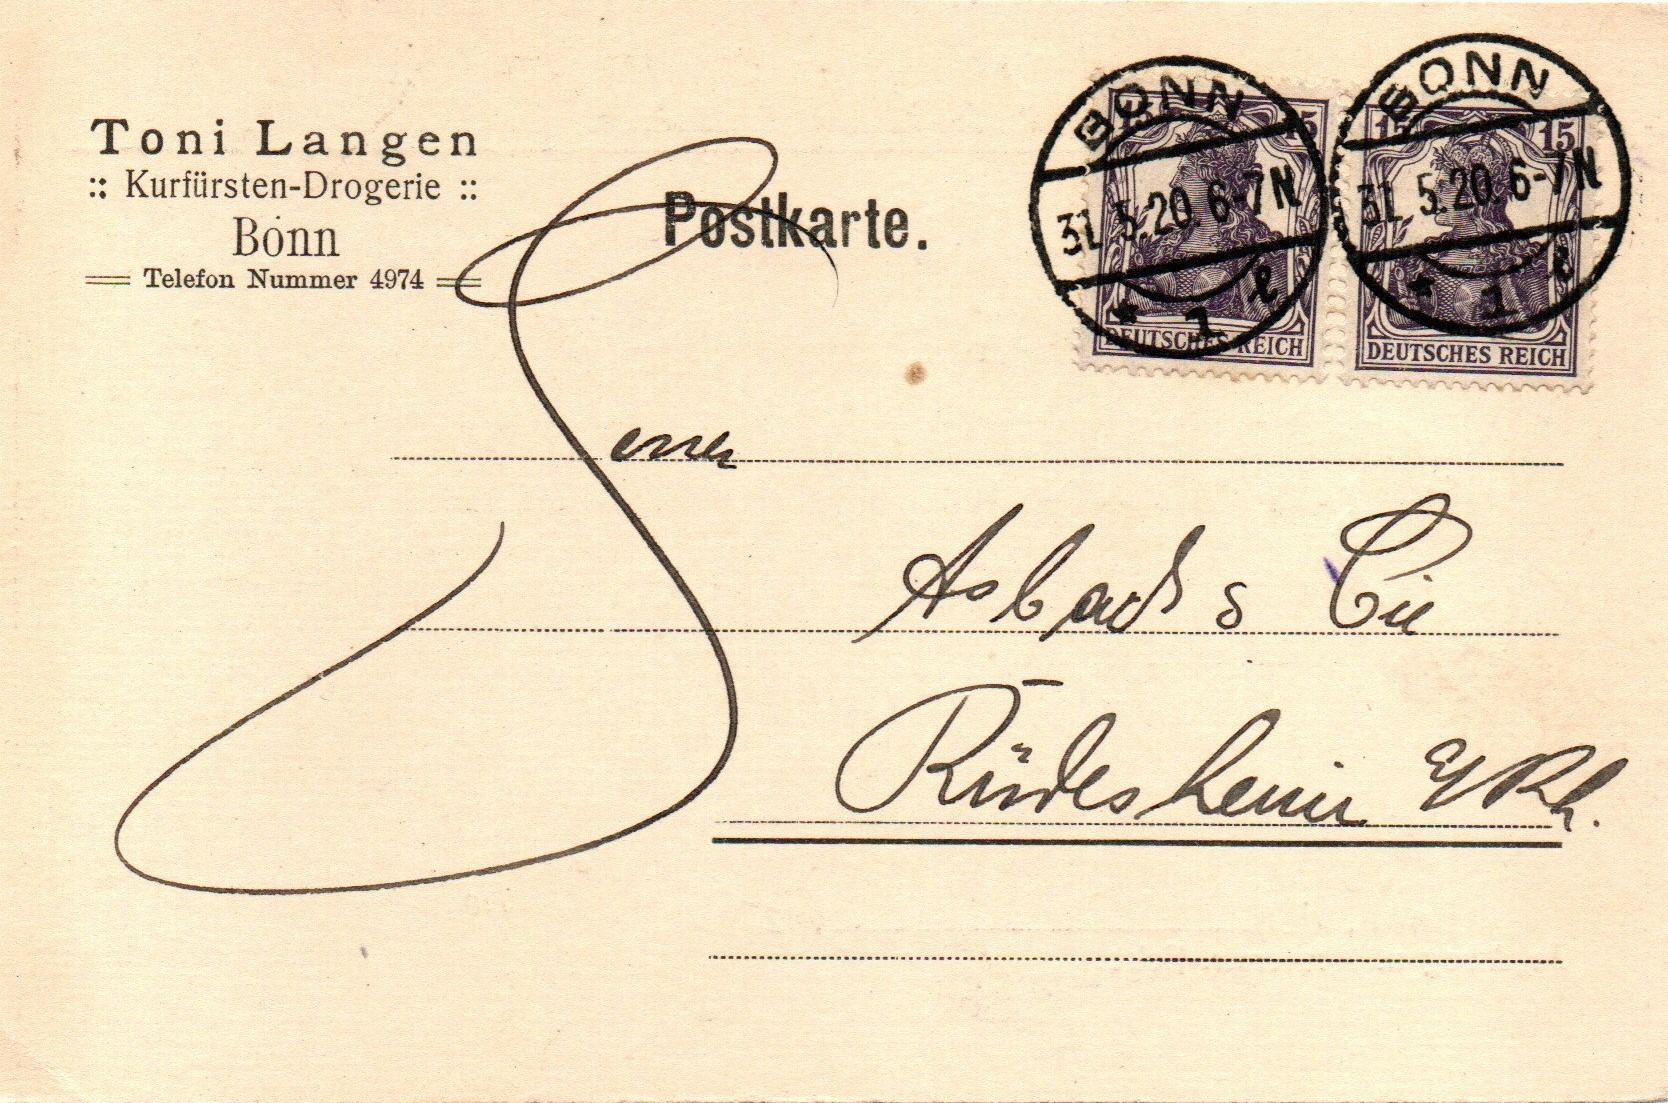 Toni Langen
:: Kurfürsten-Drogerie ::
Bonn
Telefon Nummer 4974
Postkarte.
BONN
31.5.20. 6-7N
* 1 l
15
DEUTSCHES REICH
BONN
31.5.20. 6-7N
* 1 l
15 15
DEUTSCHES REICH
Asbach & Cie
Rüdesheim a/Rh.